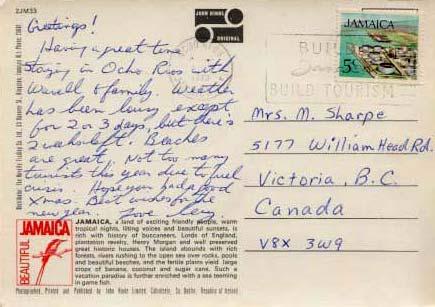 2JM33
JOHN HINDE
ORIGINAL
JAMAICA
5c
BUILD
BUILD TOURISM
Greetings!
Having a great time
staying in Ocho Rios with
& family. Weather
has been lousy except
for 2 or 3 days, but there's
2 weeks left. Beaches
are great. Not too many
tourists this year due to fuel
crisis. Hope you had a good
Xmas. Best wishes for the
new year. Love
Mrs. M. Sharpe
5177 William Head Rd.
Victoria, B.C.
Canada
V8X 3W9
BEAUTIFUL
JAMAICA
JAMAICA, a land of exciting friendly people, warm
tropical nights, lilting voices and beautiful sunsets, is
rich with history of buccaneers, Lords of England,
plantation revelry, Henry Morgan and well preserved
great historic houses. The island abounds with rich
forests, rivers rushing to the open sea over rocks, pools
and beautiful beaches, and the fertile plants yield large
crops of banana, coconut and sugar cane. Such a
vacation paradise is further enriched with a sea teeming
in game fish.
Photographed, Printed and Published by John Hinde Limited, Cabinteely, Co. Dublin, Republic of Ireland